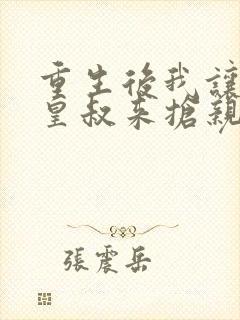 重生後我讓
皇叔來搶親
張震岳